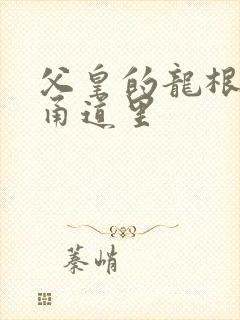 父皇的龍根
甬道里
蓁峭